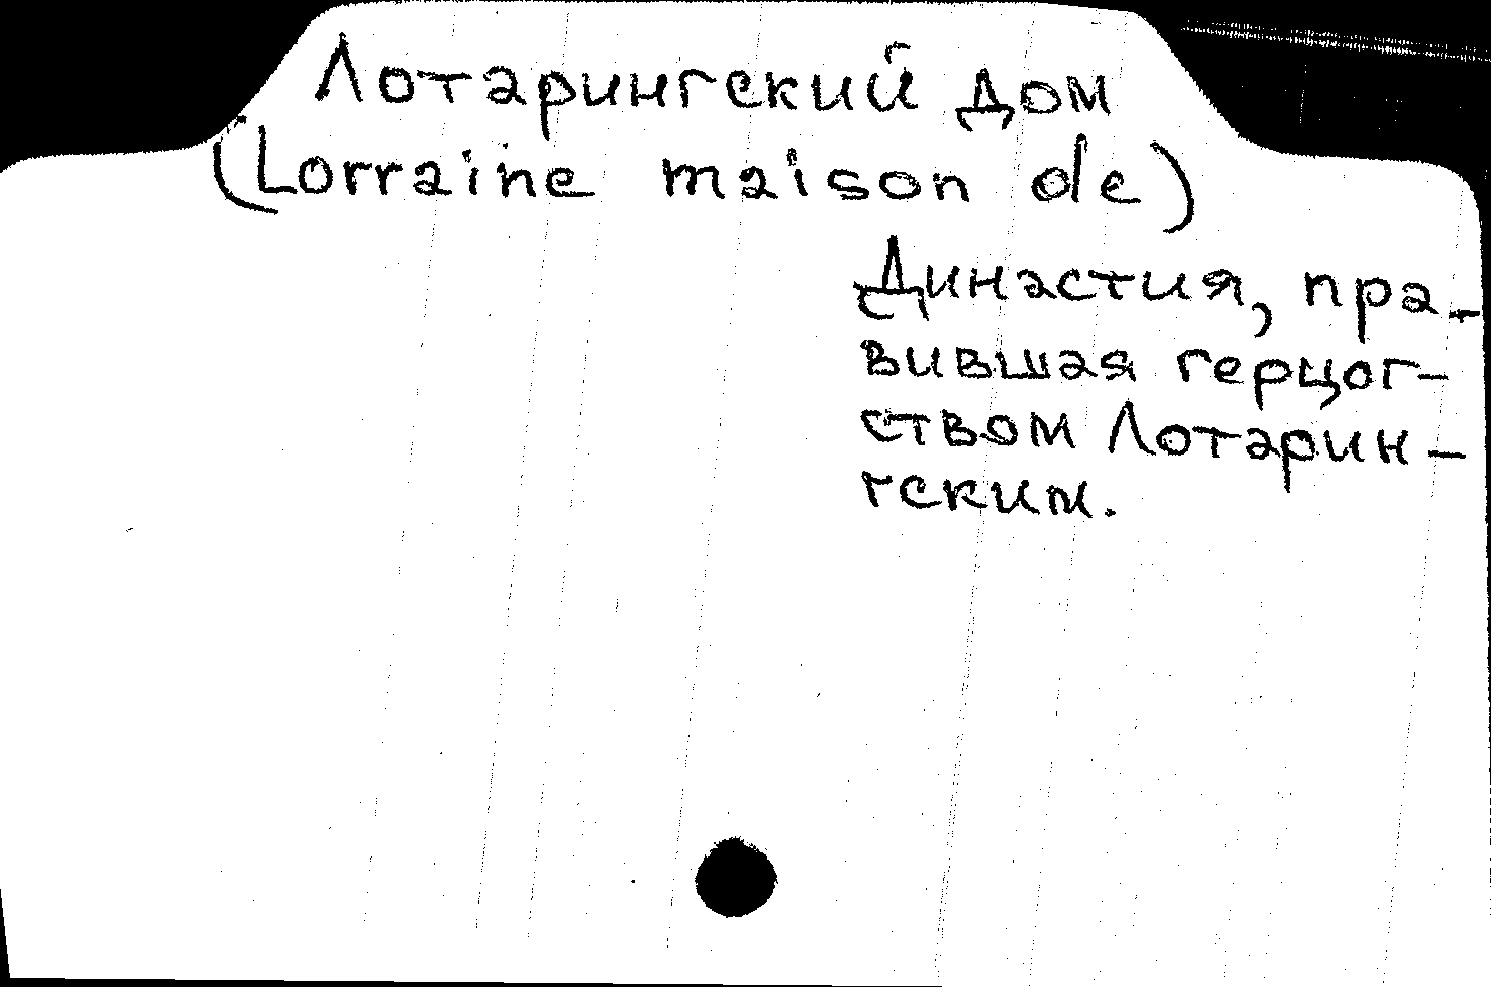 Лотарингский дом
(Lorraine maison de)
Династия, пра-
вившая герцог-
ством Лотарин-
гским.